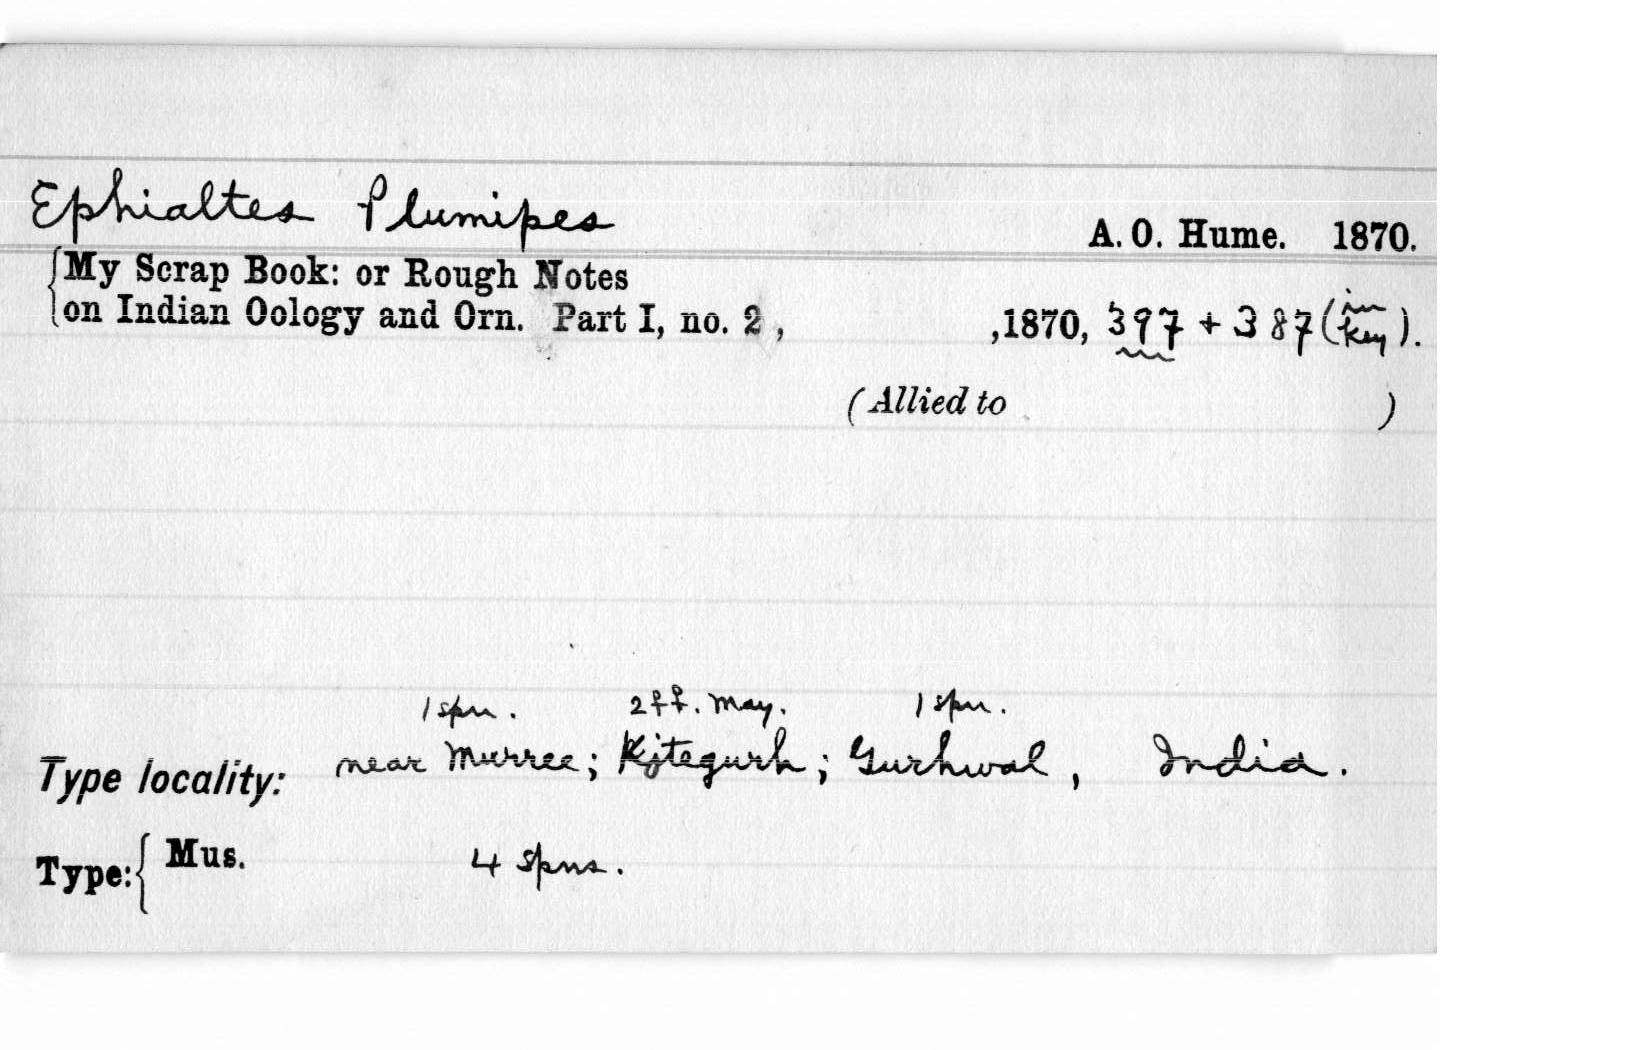 Ephialtes Plumipes
A. O. Hume. 1870.
{My Scrap Book: or Rough Notes
on Indian Oology and Orn. Part I, no. 2, ,1870, 397 + 387 (in key).
(Allied to )
1 spn. 2 ♀♀. May. 1 spn.
Type locality: near Murree; Kotegurh; Gurhwal, India.
Type:{ Mus. 4 spns.